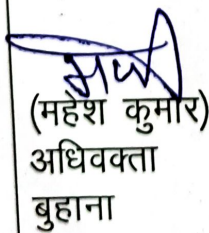 (महेश कुमार)
अधिवक्ता
बुहाना